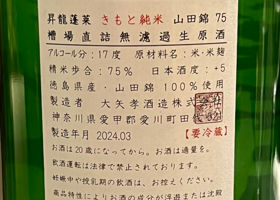 昇龍蓬莱 きもと純米 山田錦 75
槽場直詰無濾過生原酒
アルコール分：17度 原材料名：米・米麹
精米歩合：75% 日本酒度：+5
徳島県産・山田錦100%使用
製造者 大矢孝酒造株式会社
神奈川県愛甲郡愛川町田代
製造年月 2024.03 【要冷蔵】
お酒は20歳になってから。お酒は適量を。
飲酒運転は法律で禁止されております。
妊娠中や授乳期の飲酒は、お控えください。
商品特性によりお酒の成分が浮遊または沈殿